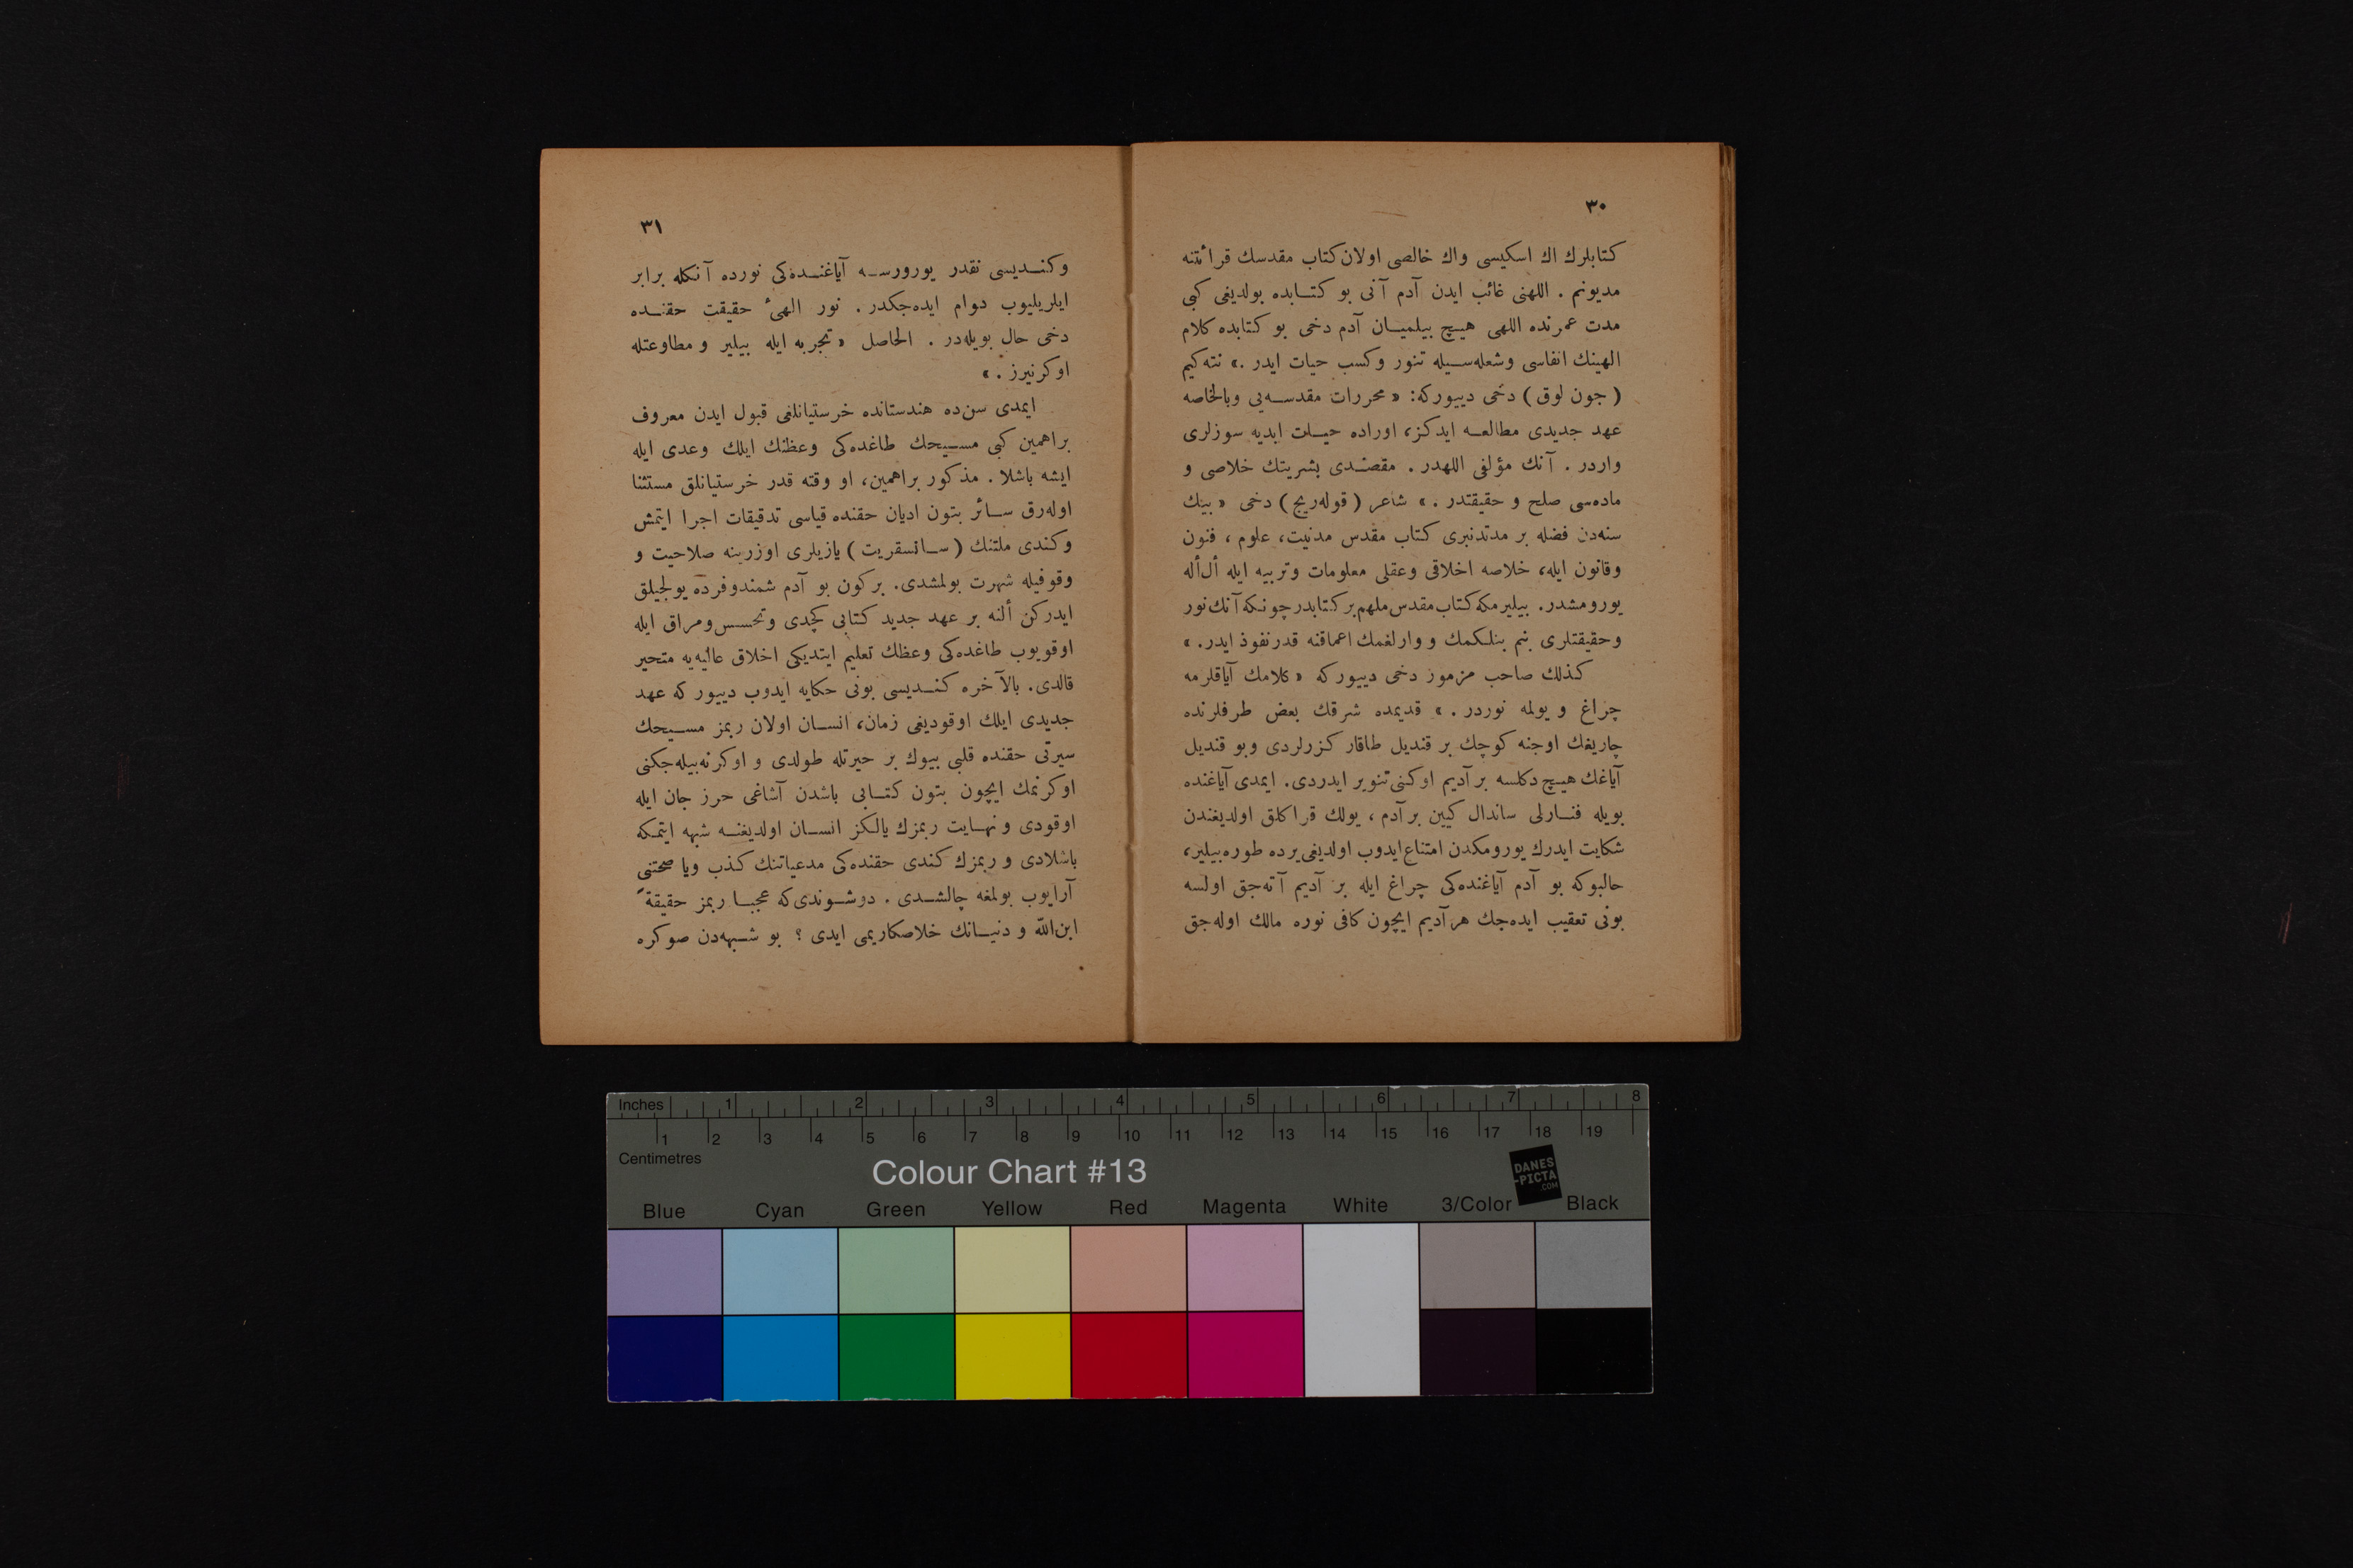 ٣٠
كتابلرك اك اسكيسى واك خالصى اولان كتاب مقدسك قرائتنه
مديونم . اللهنى غائب ايدن آدم آنى بو كتابده بولديغى كبى
مدت عمرنده اللهى هيچ بيلميان آدم دخى بو كتابده كلام
الهينك انفاسى وشعله‌سيله تنور وكسب حيات ايدر .» نته‌كيم
( جون لوق ) دخى دييوركه: « محررات مقدسه‌يى وبالخاصه
عهد جديدى مطالعه ايدكز، اوراده حيات ابديه سوزلرى
واردر . آنك مؤلفى اللهدر . مقصدى بشريتك خلاصى و
ماده‌سى صلح و حقيقتدر . » شاعر ( قوله‌ريج ) دخى « بيك
سنه‌دن فضله بر مدتدنبرى كتاب مقدس مدنيت، علوم ، فنون
وقانون ايله، خلاصه اخلاقى وعقلى معلومات وتربيه ايله أل‌أله
يورومشدر. بيليرمكه كتاب مقدس ملهم بر كتابدر چونكه آنك نور
وحقيقتلرى بنم بنلكمك و وارلغمك اعماقنه قدر نفوذ ايدر. »
كذلك صاحب مزمور دخى دييور كه « كلامك آياقلرمه
چراغ و يولمه نوردر . » قديمده شرقك بعض طرفلرنده
چاريغك اوجنه كوچك بر قنديل طاقار كزرلردى وبو قنديل
آياغك هيچ دكلسه بر آديم اوكنى تنوير ايدردى. ايمدى آياغنده
بويله فنارلى ساندال كيين بر آدم ، يولك قراكلق اولديغندن
شكايت ايدرك يورومكدن امتناع ايدوب اولديغى يرده طوره بيلير،
حالبوكه بو آدم آياغنده‌كى چراغ ايله بر آديم آته‌جق اولسه
بونى تعقيب ايده‌جك هر آديم ايچون كافى نوره مالك اوله‌جق
٣١
وكنديسى نقدر يورورسه آياغنده‌كى نورده آنكله برابر
ايلريليوب دوام ايده‌جكدر . نور الهىٔ حقيقت حقنده
دخى حال بويله‌در . الحاصل « تجربه ايله بيلير و مطاوعتله
اوكرنيرز . »
ايمدى سن‌ده هندستانده خرستيانلغى قبول ايدن معروف
براهمين كبى مسيحك طاغده‌كى وعظنك ايلك وعدى ايله
ايشه باشلا . مذكور براهمين، او وقته قدر خرستيانلق مستثنا
اوله‌رق سائر بتون اديان حقنده قياسى تدقيقات اجرا ايتمش
وكندى ملتنك ( سانسقريت ) يازيلرى اوزرينه صلاحيت و
وقوفيله شهرت بولمشدى. بر كون بو آدم شمندوفرده يولجيلق
ايدركن ألنه بر عهد جديد كتابى كچدى وتحسس ومراق ايله
اوقويوب طاغده‌كى وعظك تعليم ايتديكى اخلاق عاليه‌يه متحير
قالدى. بالآخره كنديسى بونى حكايه ايدوب دييور كه عهد
جديدى ايلك اوقوديغى زمان، انسان اولان ربمز مسيحك
سيرتى حقنده قلبى بيوك بر حيرتله طولدى و اوكرنه‌بيله‌جكنى
اوكرنمك ايچون بتون كتابى باشدن آشاغى حرز جان ايله
اوقودى و نهايت ربمزك يالكز انسان اولديغنه شبهه ايتمكه
باشلادى و ربمزك كندى حقنده‌كى مدعياتنك كذب ويا صحتنى
آرايوب بولمغه چالشدى . دوشوندى‌كه عجبا ربمز حقيقةً
ابن‌الله و دنيانك خلاصكاريمى ايدى ؟ بو شبهه‌دن صوكره
Inches 1 2 3 4 5 6 7 8
1 2 3 4 5 6 7 8 9 10 11 12 13 14 15 16 17 18 19
Centimetres
Colour Chart #13
DANES
-PICTA
.COM
Blue Cyan Green Yellow Red Magenta White 3/Color Black